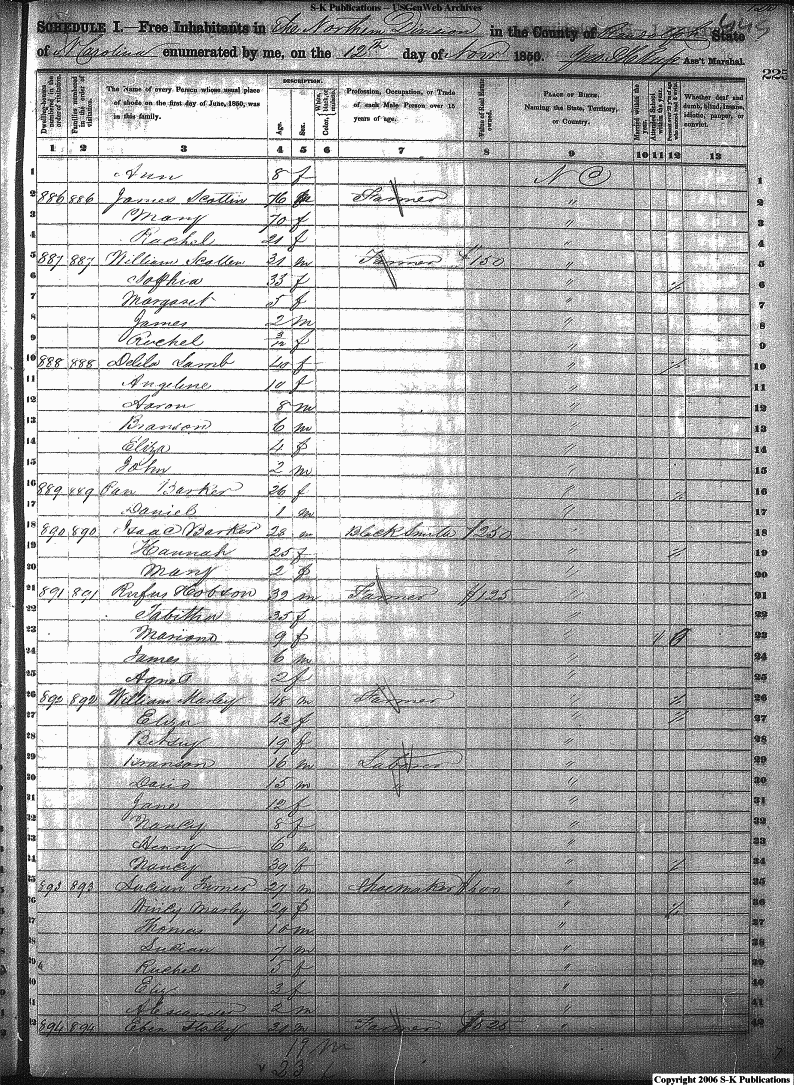 S-K Publications – USGenWeb Archives
SCHEDULE I.—Free Inhabitants in The Northern Division in the County of Randolph State
of N Carolina enumerated by me, on the 12th day of Novr 1850. Ass't Marshal.
225
DESCRIPTION.
Dwelling-houses numbered in the order of visitation.
Families numbered in the order of visitation.
The Name of every Person whose usual place of abode on the first day of June, 1850, was in this family.
Age.
Sex.
Color, White, black, or mulatto.
Profession, Occupation, or Trade of each Male Person over 15 years of age.
Value of Real Estate owned.
PLACE OF BIRTH. Naming the State, Territory, or Country.
Married within the year.
Attended School within the year.
Persons over 20 y'rs of age who cannot read & write.
Whether deaf and dumb, blind, insane, idiotic, pauper, or convict.
1 2 3 4 5 6 7 8 9 10 11 12 13
1 Ann 8 f N C 1
2 886 886 James Scotten 76 m Farmer " 2
3 Mary 70 f " 3
4 Rachel 21 f " 4
5 887 887 William Scotten 31 m Farmer $150 " 5
6 Sophia 33 f " / 6
7 Margaret 5 f " 7
8 James 2 m " 8
9 Rachel 3/12 f 9
10 888 888 Delila Lamb 40 f " / 10
11 Angeline 10 f " 11
12 Aaron 8 m " 12
13 Branson 6 m " 13
14 Eliza 4 f " 14
15 John 2 m " 15
16 889 889 Barker 26 f " / 16
17 Daniel 1 m " 17
18 890 890 Isaac Barker 28 m Black Smith $250 " 18
19 Hannah 25 f " / 19
20 Mary 2 f " 20
21 891 891 Rufus Hobson 32 m Farmer $125 " 21
22 Tabitha 35 f " 22
23 9 f " / 23
24 James 6 m " 24
25 Agnes 2 f " 25
26 892 892 William Marley 48 m Farmer " / 26
27 Eliza 43 f " / 27
28 Betsey 19 f " 28
29 Branson 16 m Laborer " 29
30 David 15 m " " 30
31 Jane 12 f " 31
32 Nancy 8 f " 32
33 Henry 6 m " 33
34 Nancy 39 f " / 34
35 893 893 Turner 27 m Shoemaker " 35
36 Marley 29 f " / 36
37 Thomas 10 m " 37
38 7 m " 38
39 Rachel 5 f " 39
40 3 f " 40
41 Alexander 2 m " 41
42 894 894 Eben Staley m Farmer $525 " 42
19 m
23 f
Copyright 2006 S-K Publications